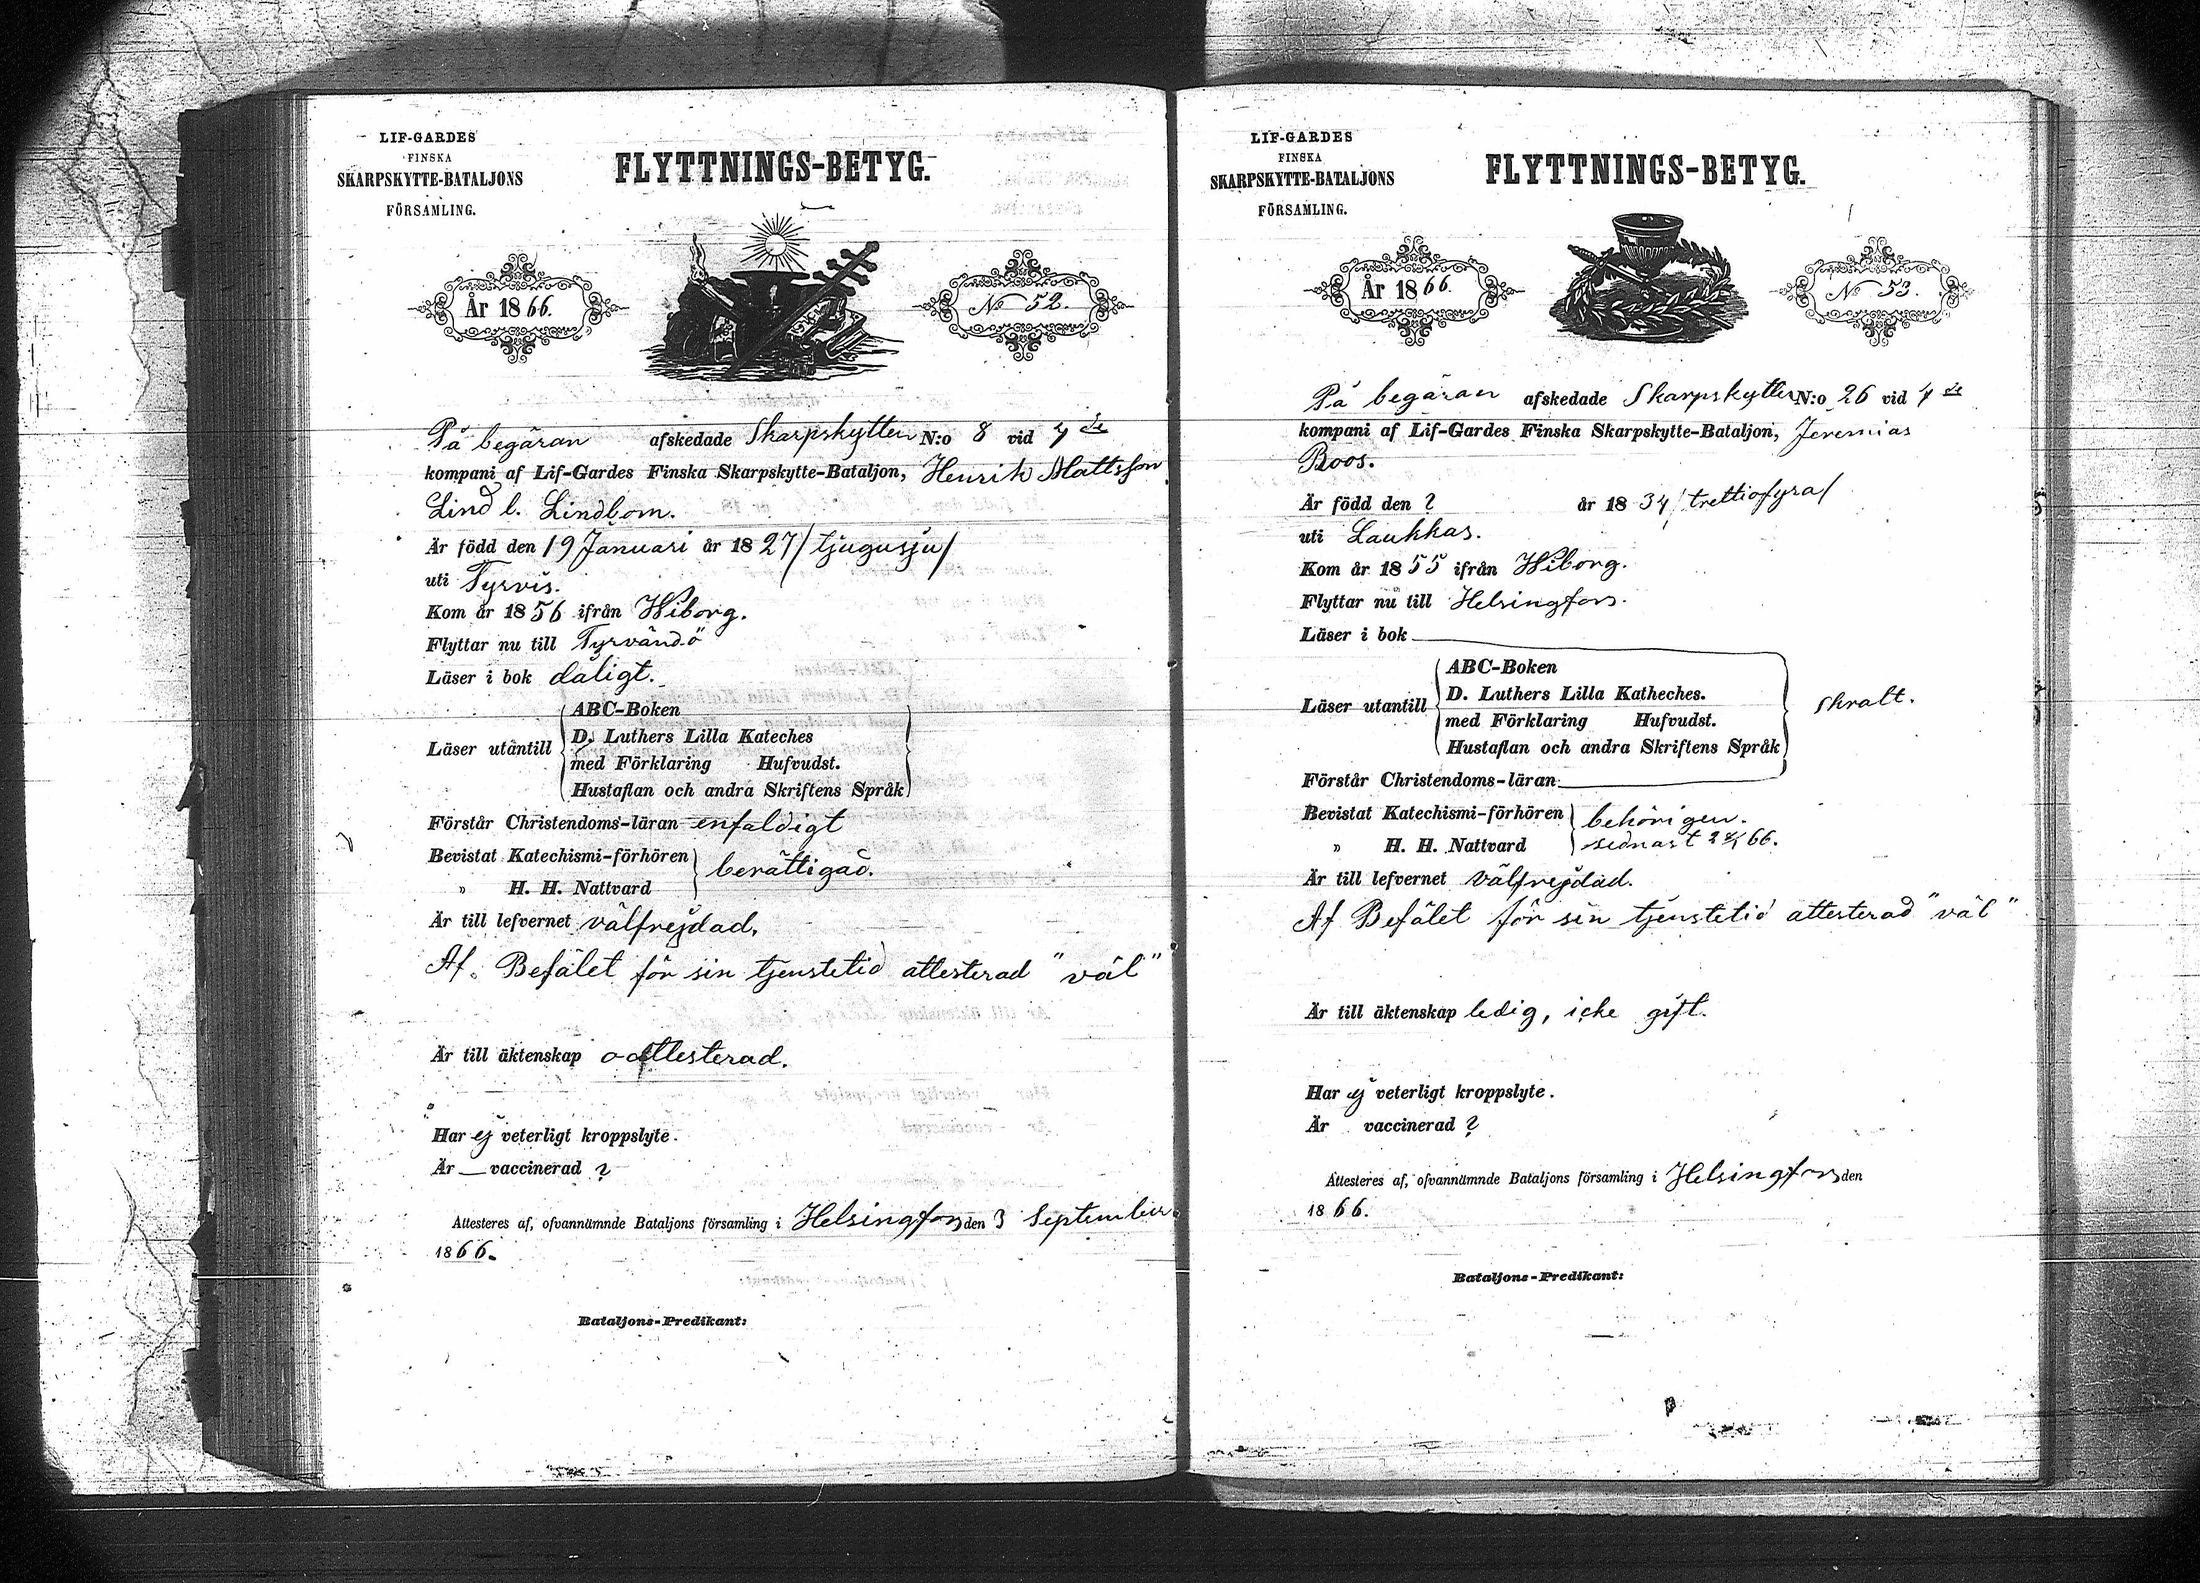 LIF-GARDES
FINSKA
SKARPSKYTTE-BATALJONS
FÖRSAMLING.
FLYTTNINGS-BETYG.
År 1866.
No 52.
På begäran afskedade Skarpskytten N:o 8 vid 4de
kompani af Lif-Gardes Finska Skarpskytte-Bataljon, Henrik Mattsson
Lind l. Lindbom.
Är född den 19 Januari år 1827/tjugusju/
uti Tyrvis.
Kom år 1856 ifrån Wiborg.
Flyttar nu till Tyrvändö
Läser i bok dåligt.
Läser utantill
ABC-Boken
D. Luthers Lilla Kateches
med Förklaring Hufvudst.
Hustaflan och andra Skriftens Språk
Förstår Christendoms-läran enfaldigt
Bevistat Katechismi-förhören
„ H. H. Nattvard
berättigad.
Är till lefvernet välfrejdad.
Af Befälet för sin tjenstetid attesterad "väl"
Är till äktenskap oattesterad.
Har ej veterligt kroppslyte.
Är — vaccinerad ?
Attesteres af, ofvannämnde Bataljons församling i Helsingfors den 3 September
1866.
Bataljons-Predikant:
LIF-GARDES
FINSKA
SKARPSKYTTE-BATALJONS
FÖRSAMLING.
FLYTTNINGS-BETYG.
År 1866.
No 53.
På begäran afskedade Skarpskytten N:o 26 vid 4de
kompani af Lif-Gardes Finska Skarpskytte-Bataljon, Jeremias
Roos.
Är född den ? år 1834/trettiofyra/
uti Laukkas.
Kom år 1855 ifrån Wiborg.
Flyttar nu till Helsingfors.
Läser i bok
Läser utantill
ABC-Boken
D. Luthers Lilla Katheches.
med Förklaring Hufvudst.
Hustaflan och andra Skriftens Språk
skralt.
Förstår Christendoms-läran
Bevistat Katechismi-förhören behörigen.
„ H. H. Nattvard sednast 66.
Är till lefvernet välfrejdad.
Af Befälet för sin tjenstetid attesterad "väl"
Är till äktenskap ledig, icke gift.
Har ej veterligt kroppslyte.
Är vaccinerad ?
Attesteres af, ofvannämnde Bataljons församling i Helsingfors den
1866.
Bataljons-Predikant: